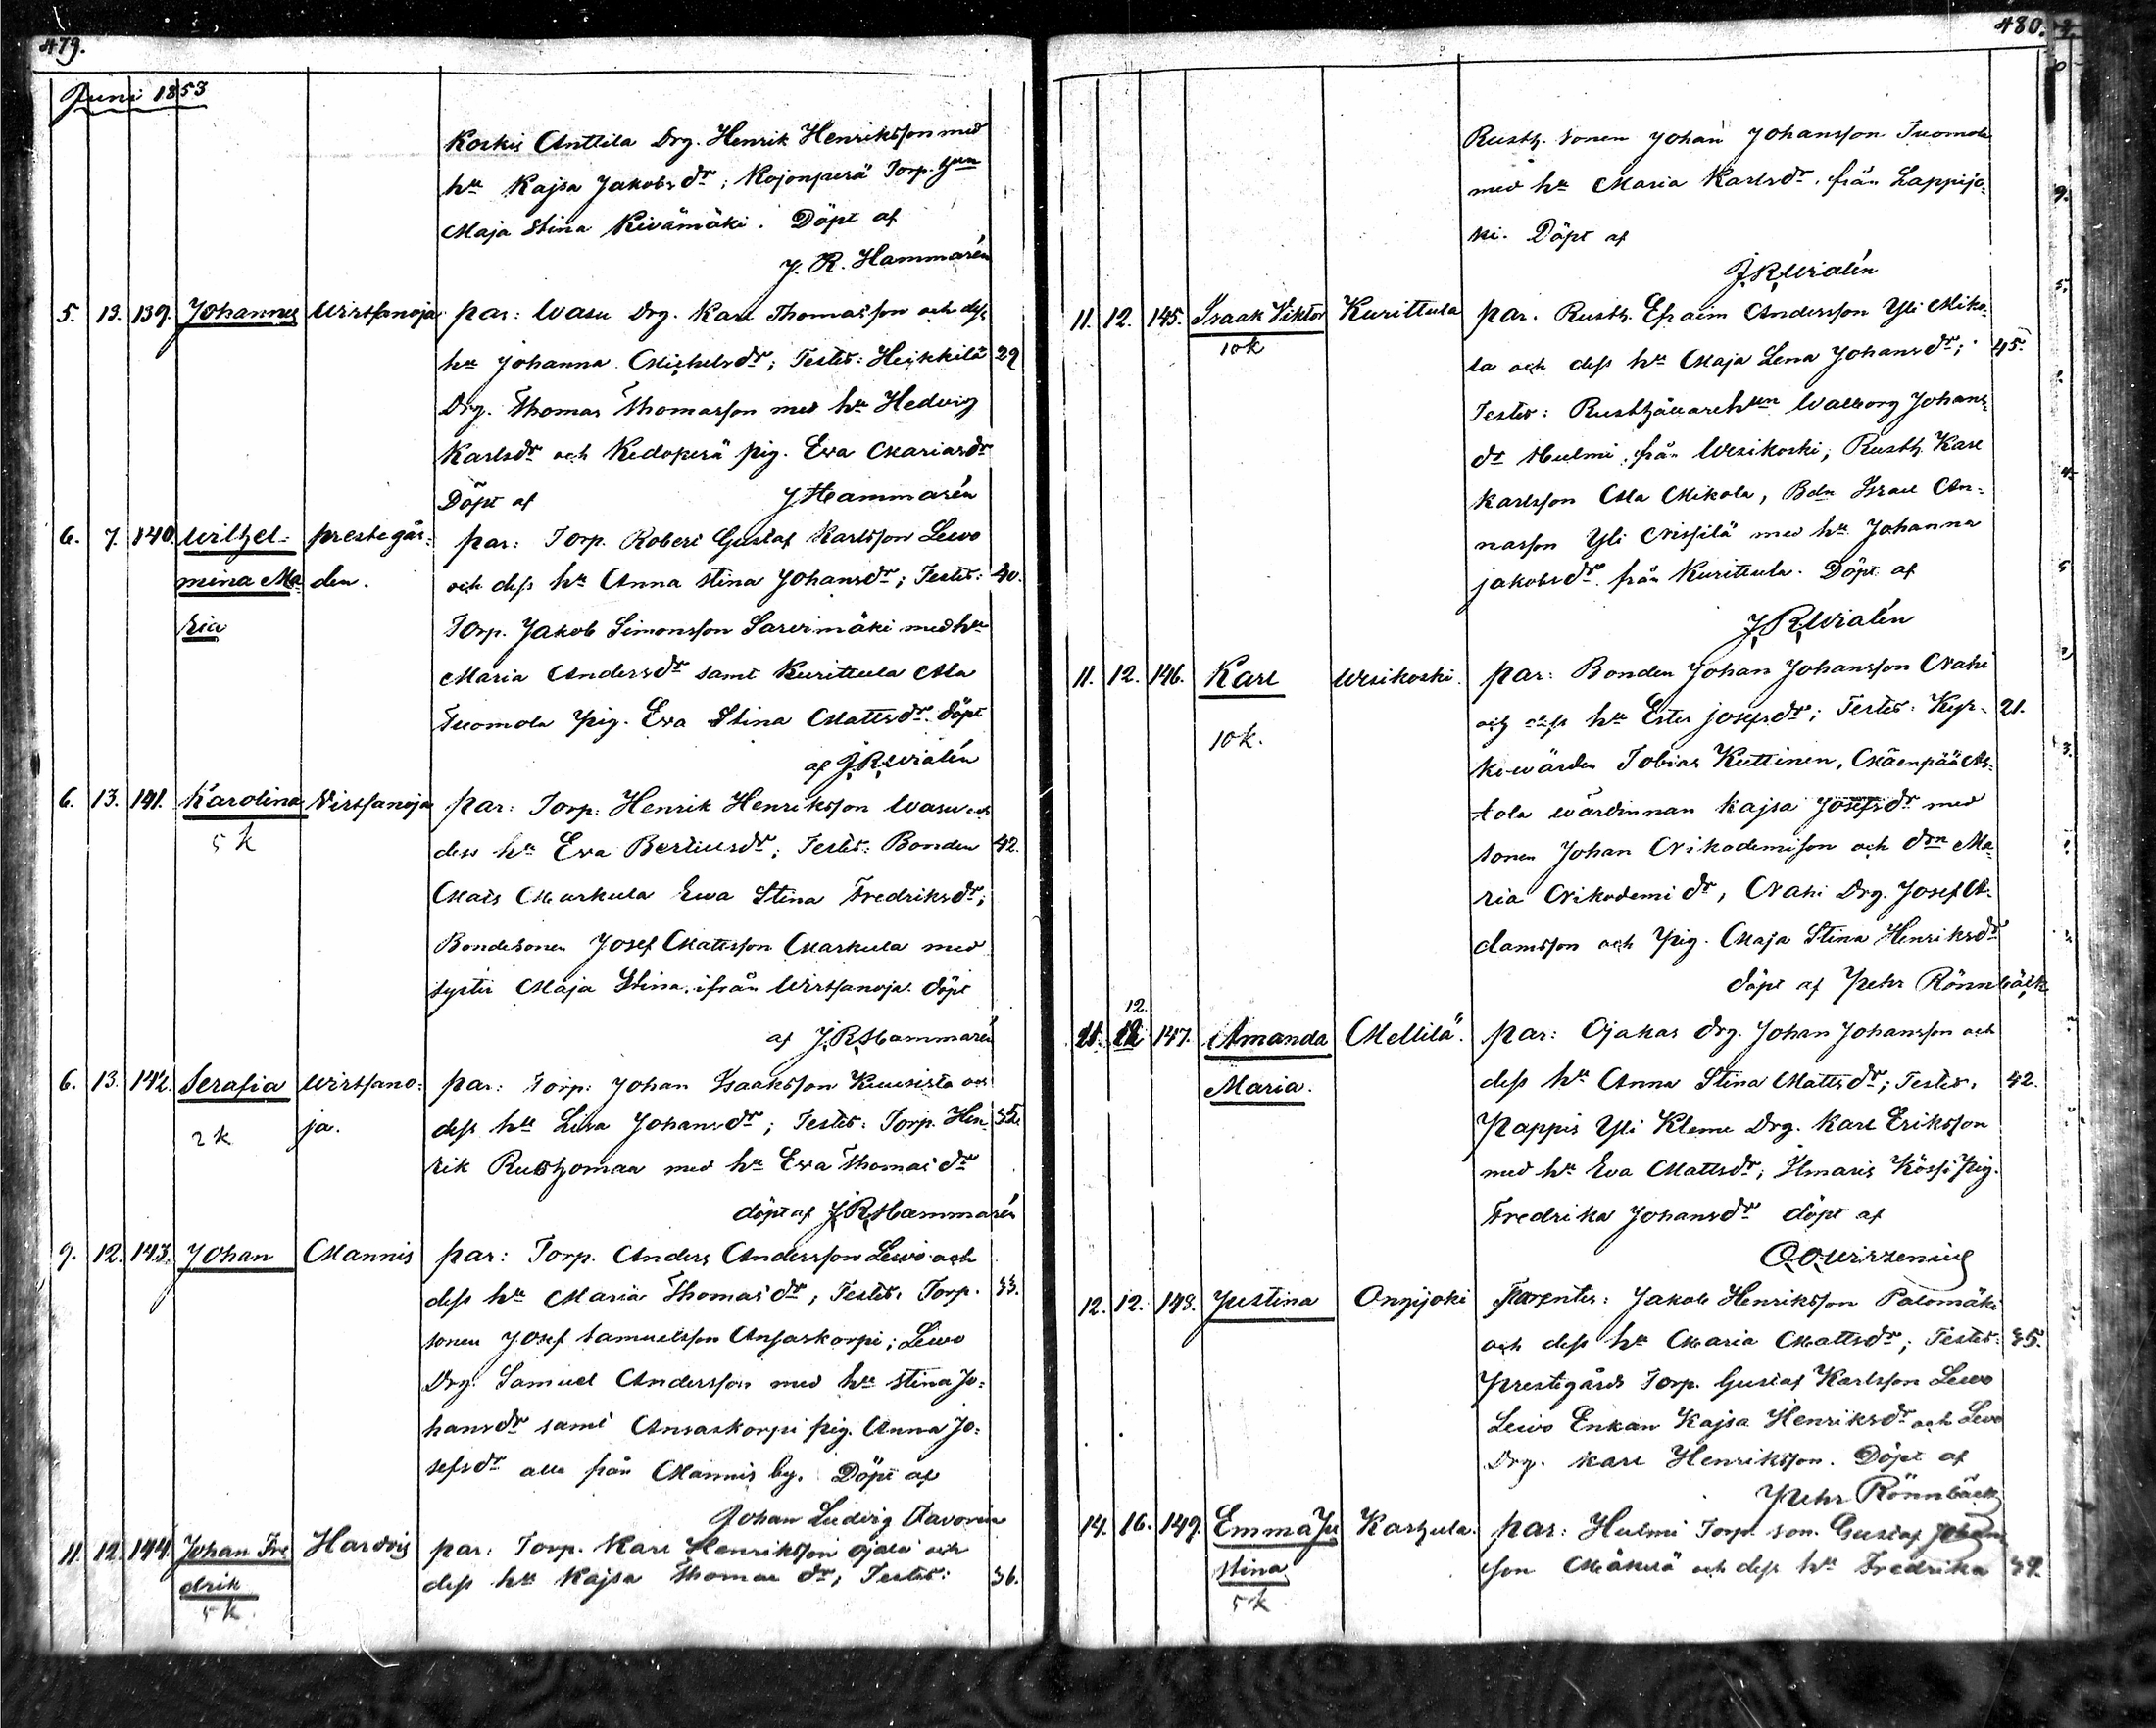 479.
Juni 1853
Koskis Anttila Drg. Henrik Henriksson med
hu Kajsa Jakobsdr; Kojonperä Torp. hun
Maja Stina Kivämäki. Döpt af
J. R. Hammarén
5. 13. 139. Johannes Wirtsanoja par: Wasu Drg. Karl Thomasson och dess
hu Johanna Michelsdr; Testes: Heikkilä 29
Drg. Thomas Thomasson med hu Hedwig
Karlsdr och Kedoperä pig. Eva Mariasdr
Döpt af J Hammarén
6. 7. 140. Wilhel- prestegår- par: Torp. Robert Gustaf Karlsson Lewo
mina Ma- den. och dess hu Anna Stina Johansdr; Testes: 40.
ria Torp. Jakob Simonsson Sarvimäki med hu
Maria Andersdr samt Kurittula Ala
Tuomola pig. Eva Stina Mattsdr. döpt
af J.R. Wialén
6. 13. 141. Karolina Virtsanoja par: Torp: Henrik Henriksson Wasu och
5 k dess hu Eva Bertilsdr; Testes: Bonden 42.
Mats Markula Ewa Stina Fredriksdr;
Bondesonen Josef Mattsson Markula med
syster Maja Stina, ifrån Wirtsanoja. döpt
af J.R. Hammarén
6. 13. 142. Serafia Wirtsano- par: Torp: Johan Isaaksson Kuusisto och
2 k ja. dess hu Lisa Johansdr; Testes: Torp. Hen- 35.
rik Ruohomaa med hu Eva Thomasdr
döpt af J.R. Hammarén
9. 12. 143. Johan Mannis par: Torp. Anders Andersson Lewo och
dess hu Maria Thomasdr; Testes: Torp. 33.
sonen Josef Samuelsson Ansaskorpi; Lewo
Drg. Samuel Andersson med hu Stina Jo-
hansdr samt Ansaskorpi pig. Anna Jo-
sefsdr alla från Mannis by. Döpt af
Johan Ludvig Aavorin
11. 12. 144. Johan Fre Hardvis par: Torp. Karl Henriksson Ojala och
drik dess hu Kajsa Thomasdr; Testes: 36.
5 k.
480.
Rusth. sonen Johan Johansson Tuomola
med hu Maria Karlsdr. från Lappijo-
ki. Döpt af
J.R. Wialén
11. 12. 145. Isaak Viktor Kurittula par. Rusth. Efraim Andersson Yli Miko-
10 k la och dess hu Maja Lena Johansdr; 45.
Testes: Rusthållarehun Walborg Johans-
dr Hulmi, från Wesikoski, Rusth. Karl
Karlsson Ala Mikola, Bdn Israel An-
nasson Yli Nissilä med hu Johanna
Jakobsdr. från Kurittula. Döpt af
J.R. Wialén
11. 12. 146. Karl Wesikoski. par: Bonden Johan Johansson Nahi
och dess hu Ester Josefsdr; Testes: Kyr- 21.
10 k. kowärden Tobias Kuttinen, Mäenpää At-
tola wärdinnan Kajsa Josefsdr med
sonen Johan Nikodemisson och drn Ma-
ria Nikodemidr, Nahi Drg. Josef A-
damsson och Pig. Maja Stina Henriksdr
döpt af Pehr Rönnbäck
12.
11. 12 147. Amanda Mellilä. par: Ojakas drg. Johan Johansson och
Maria. dess hu Anna Stina Mattsdr; Testes: 42.
Pappis Yli Kleme Drg. Karl Eriksson
med hu Eva Mattsdr; Ilmaris Kössi Pig.
Fredrika Johansdr döpt af
O. Wirzenius
12. 12. 148. Justina Onzijoki Parentes: Jakob Henriksson Palomäki
och dess hu Maria Mattsdr; Testes: 35.
Prestegårds Torp. Gustaf Karlsson Lewo
Lewo Enkan Kajsa Henriksdr och Lewo
Drg. Karl Henriksson. Döpt af
Pehr Rönnbäck
14. 16. 149. Emma Ju Karhula. par: Hulmi Torp. son. Gustaf Johans
stina son Mäkelä och dess hu Fredrika 39.
5 k